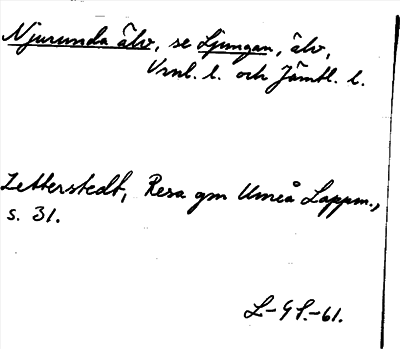 Njurunda älv, se Ljungan, älv,
Vrnl. l. och Jämtl. l.
Zetterstedt, Resa gm Umeå Lappm.,
s. 31.
L-gf.-61.